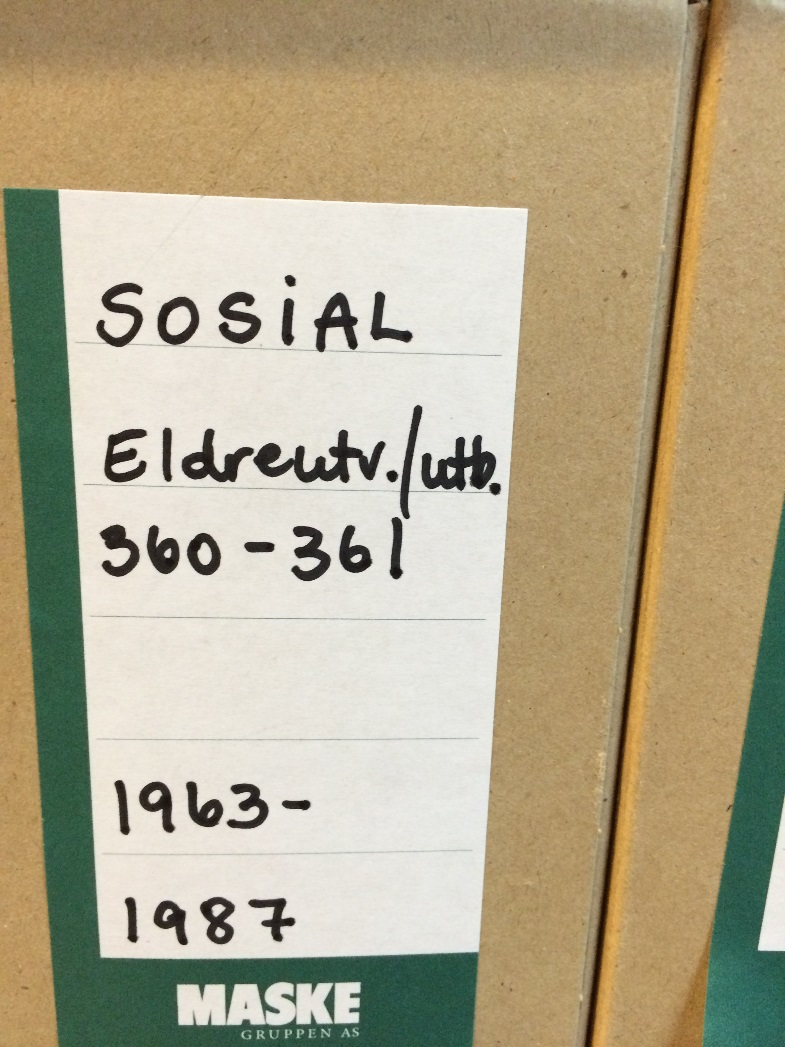 SOSiAL
Eldreutv./utb.
360-361
1963-
1987
MASKE
GRUPPEN AS